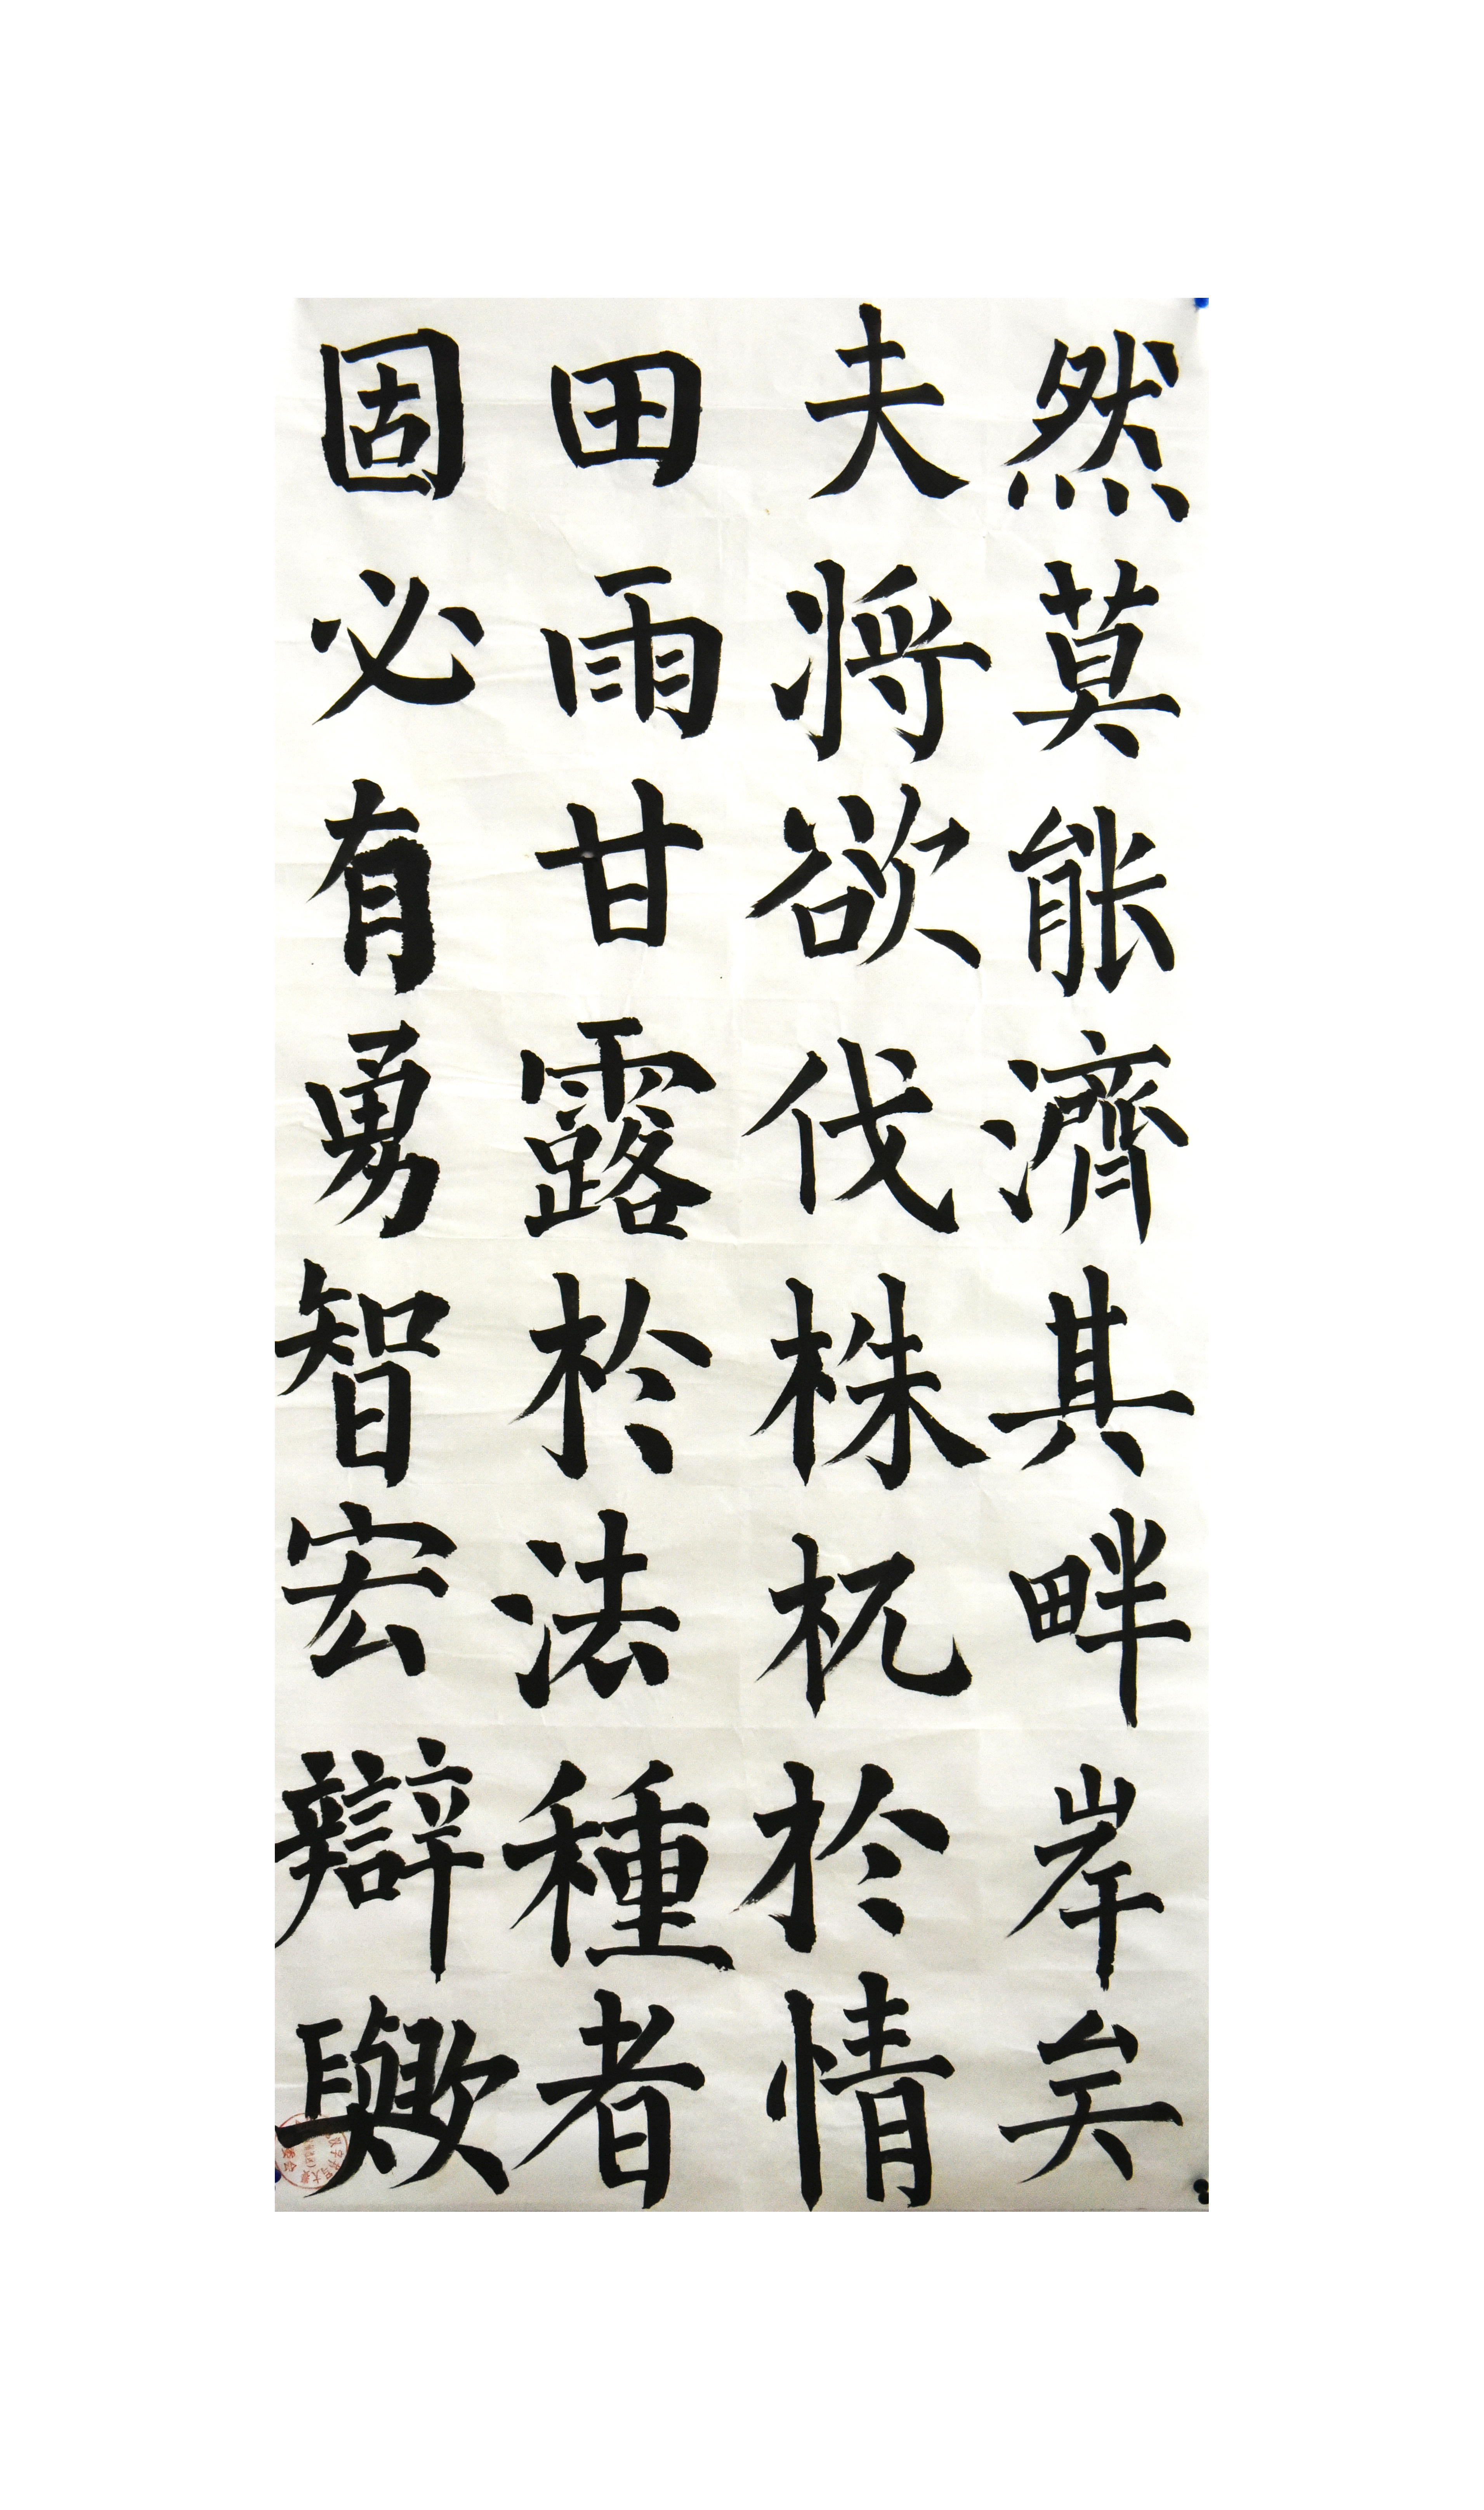 然莫能濟其畔岸矣
夫将欲伐株杌於情
田雨甘露於法種者
固必有勇智宏辯歟